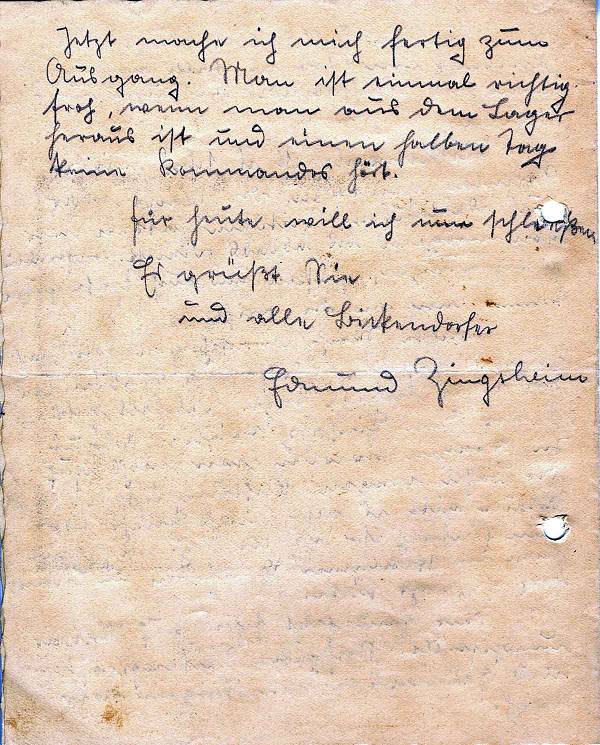 Jetzt mache ich mich fertig zum
Ausgang. Man ist einmal richtig
froh, wenn man aus dem Lager
heraus ist und einen halben Tag
keine Kommandos hört.
Für heute will ich nun schließen
Es grüßt Sie
und alle Bickendorfer
Edmund Zingsheim